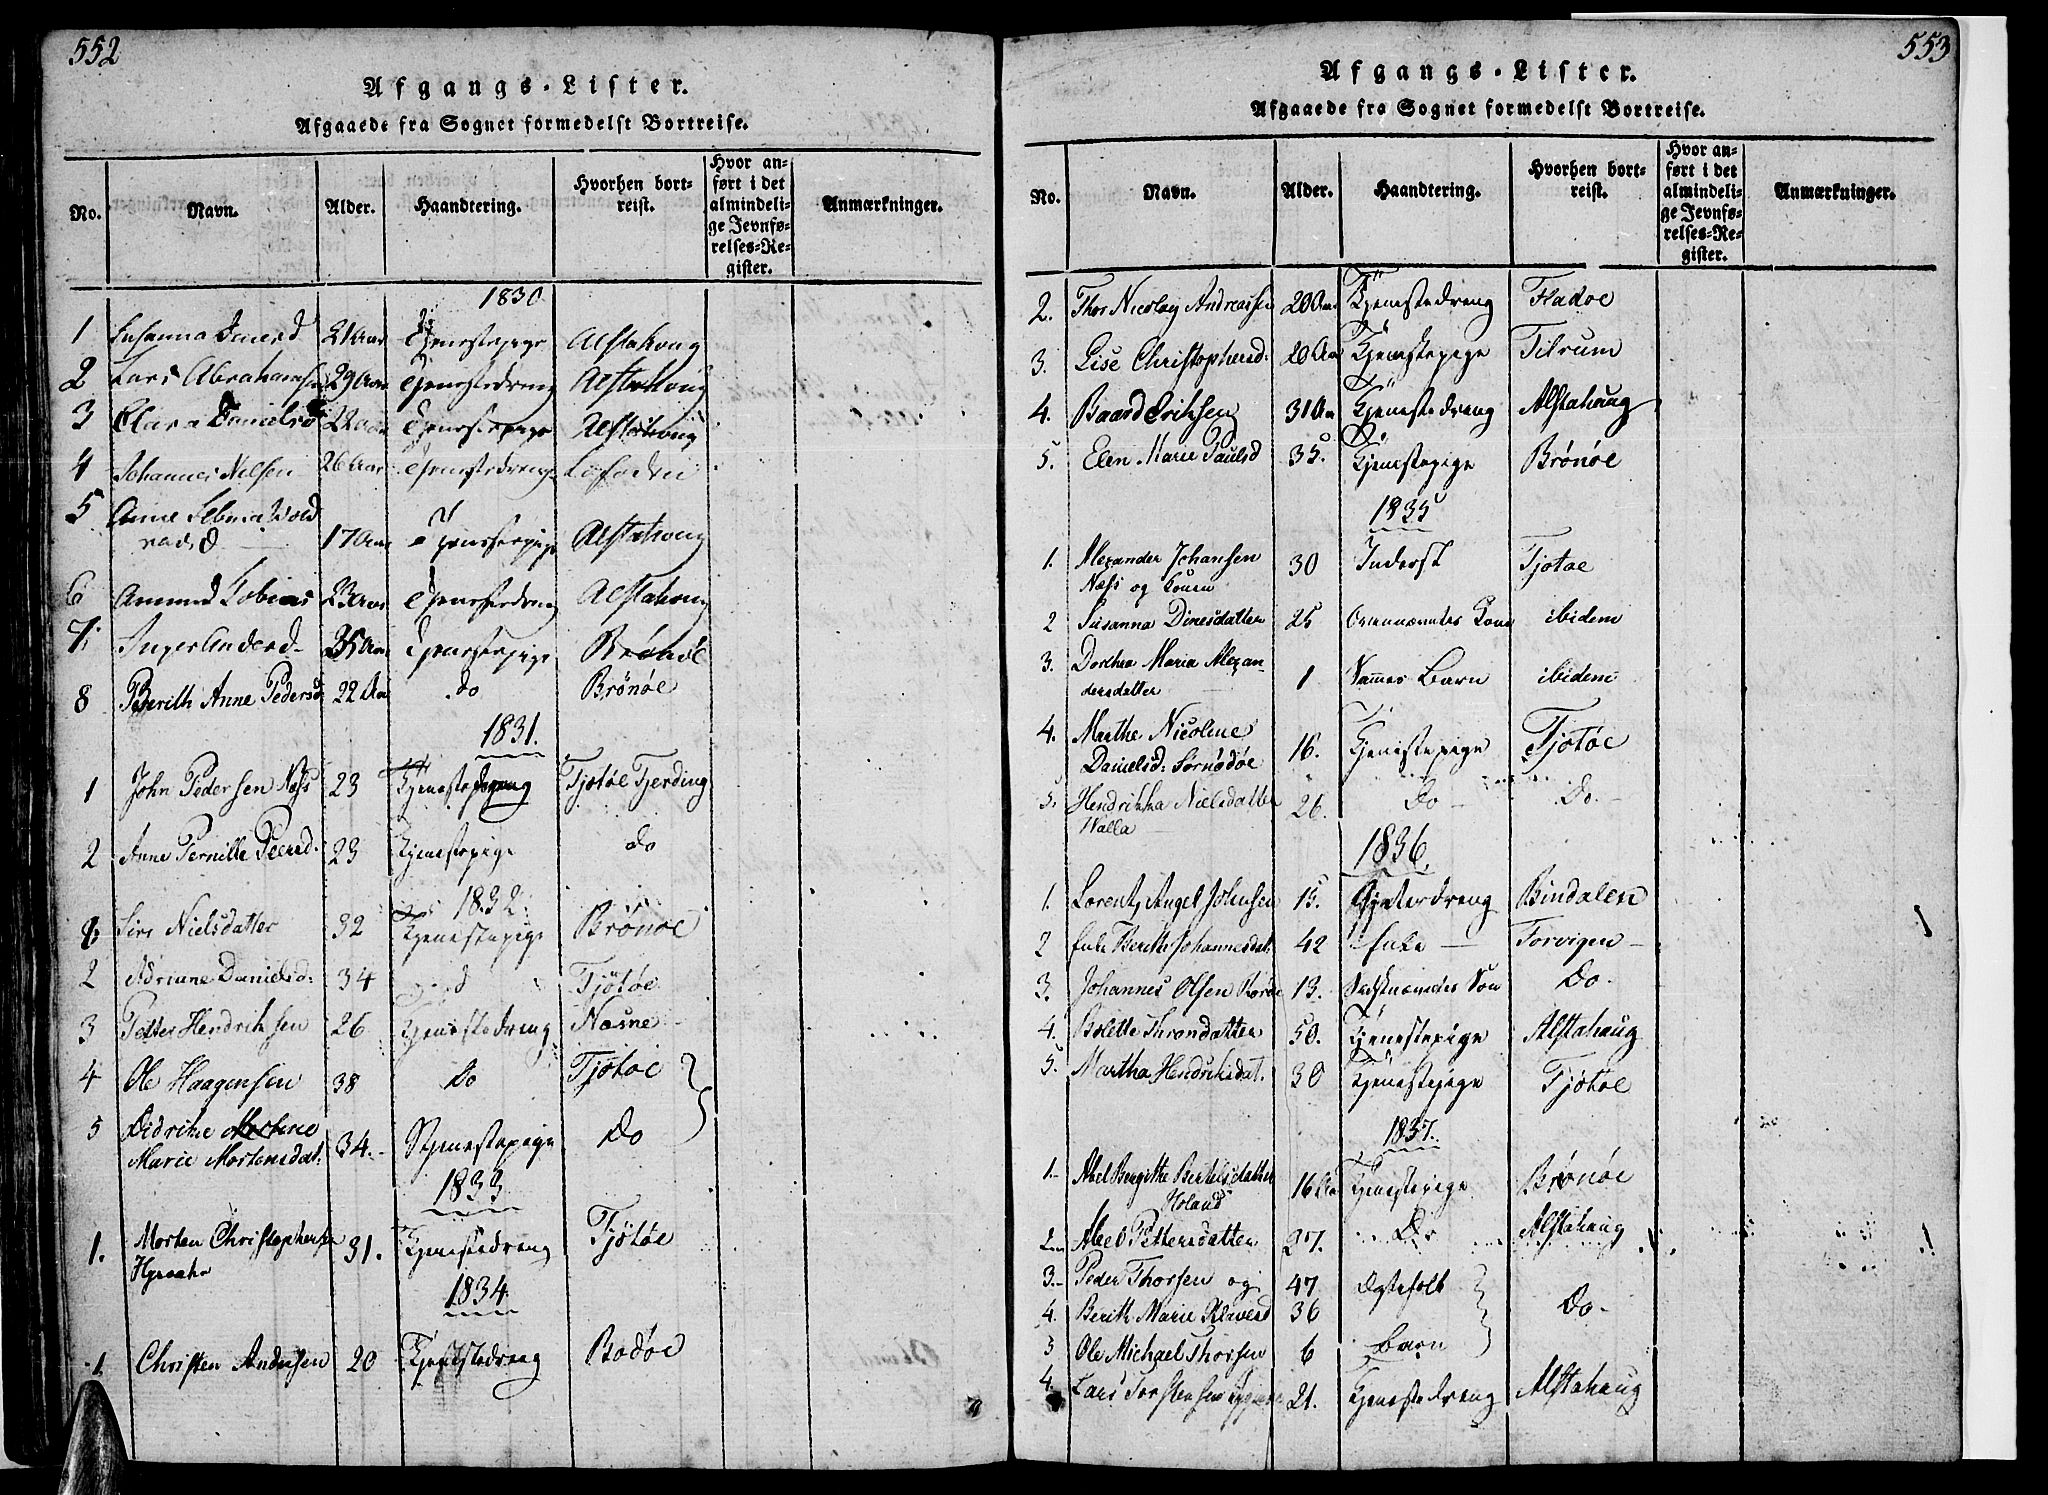 552
Afgangs-Lister.
Afgaaede fra Sognet formedelst Bortreise.
No. Navn. Alder. Haandtering. Hvorhen bortreist. Hvor anført i det almindelige Jevnførelses-Register. Anmærkninger.
1830
1 Susanna Dinesd 21 Aar Tjenestepige Alstahoug
2 Lars Abrahams 29 Aar Tjenestedreng Alstahoug
3 Clara Danielsd 22 Tjenestepige Alstahoug
4 Johannes Nilsen 26 Aar Tjenestedreng Lofoden
5 Anne
radsd 17 Aar Tjenestepige Alstahoug
6 Amund Tobias 23 Aar Tjenestedreng Alstahoug
7. Inger Andersd 35 Aar Tjenestepige Brönöe
8 Berith Anne Pedersd 22 Aar do Brönöe
1831.
1 John Pedersen Næss 23 Tjenestedreng Tjötöe Fjerding
2 Anne Pernille Peersd. 23 Tjenestepige do
1832.
1 Siri Nielsdatter 32 Tjenestepige Brönöe
2 Adriane Danielsd. 34 Tjötöe
3 Petter Hendriksen 26 Tjenestedreng Næsne
4 Ole Haagensen 38 Do Tjötöe
5 Didrikke
Marie Mortensdat. 34. Tjenestepige Do
1833
1. Morten Christophersen 31. Tjenestedreng Tjötöe
1834
1 Christen Andersen 20 Tjenestedreng Bodöe
553
Afgangs-Lister.
Afgaaede fra Sognet formedelst Bortreise.
No. Navn. Alder. Haandtering. Hvorhen bortreist. Hvor anført i det almindelige Jevnførelses-Register. Anmærkninger.
2. Thor Nicolay Andreassen 20 Aar Tjenestedreng
3. Lise Christophersd. 20 Aar Tjenestepige Tilrum
4. Baard Eriksen 31 Aar Tjenestedreng Alstahaug
5. Elen Marie Paulsd 35. Tjenestepige Brönöe
1835
1. Alexander Johansen 30 Inderst Tjötöe
Næss og Konen
2 Susanna Dinesdatter 25 Ovennævntes Kone ibidem
3. Dorthea Maria Alexan-
dersdatter 1 Sammes Barn ibidem
4. Marthe Nicoline
Danielsd. 16. Tjenestepige Tjötöe
5. Hendrikka Nielsdatter 26. Do Do.
Walla
1836
1. Lorentz Angel Johnsen 15. Bindalen
2 Enke Berith Johannesdat. 42 Enke Torvigen
3. Johannes Olsen 13. Sidstnævntes Søn Do.
4. Bolette Throndatter 50. Tjenestepige Alstahaug
5. Martha Hendriksdat. 30 Tjenestepige Tjötöe
1837.
1. Abel Bergithe Bertelsdatter
Holand 16 Aar Tjenestepige Brönöe
2. Abel Pettersdatter 27. Do Alstahaug
3. Peder Thorsen og 47 Egtefolk
4. Berith Marie Klavesd 36 Do.
5 Ole Michael Thorsen 6 Barn
4. Lars Torstensen 21. Tjenestedreng Alstahaug